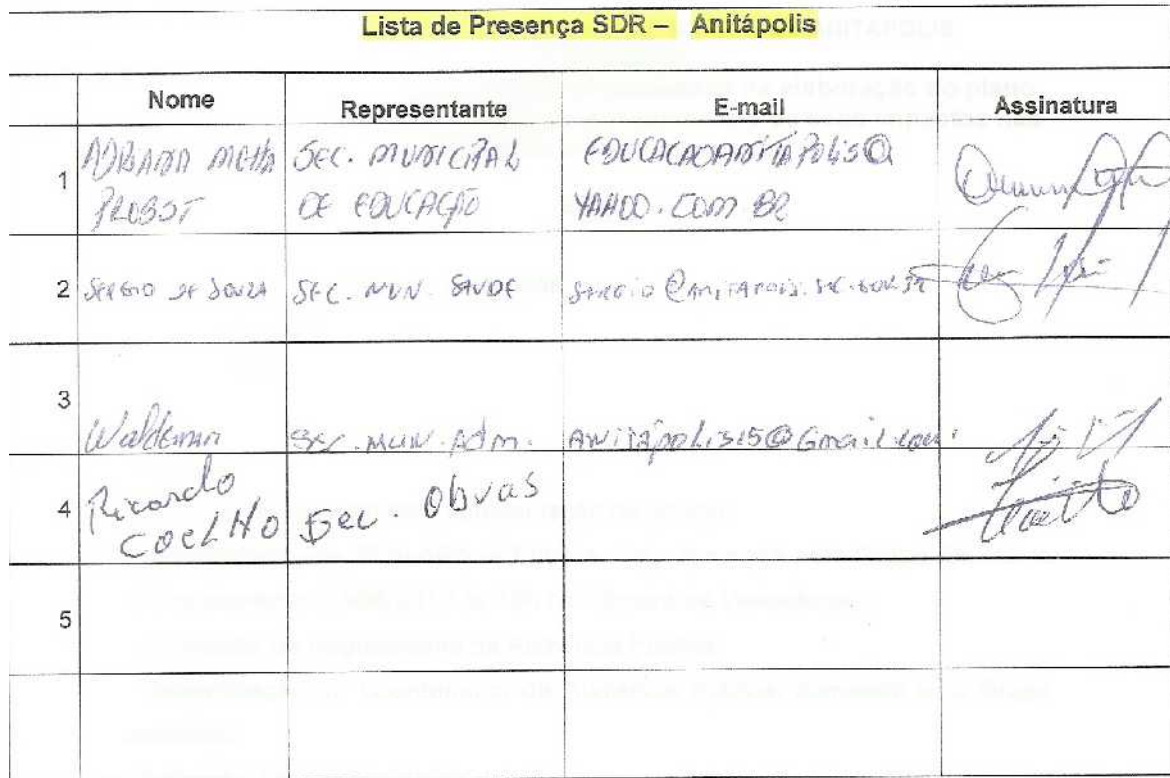 Lista de Presença SDR – Anitápolis
Nome Representante E-mail Assinatura
1 ADRIANA SEC. MUNICIPAL EDUCACAOANITAPOLIS@
PROBST DE EDUCAÇÃO YAHOO.COM BR
2 SERGIO DE SOUZA SEC. MUN. SAUDE SERGIO@ANITAPOLIS.SC.GOV.BR
3
Waldemar SEC. MUN. Adm. ANITÁPOLIS15@Gmail.com
4 Ricardo
COELHO Sec. Obras
5